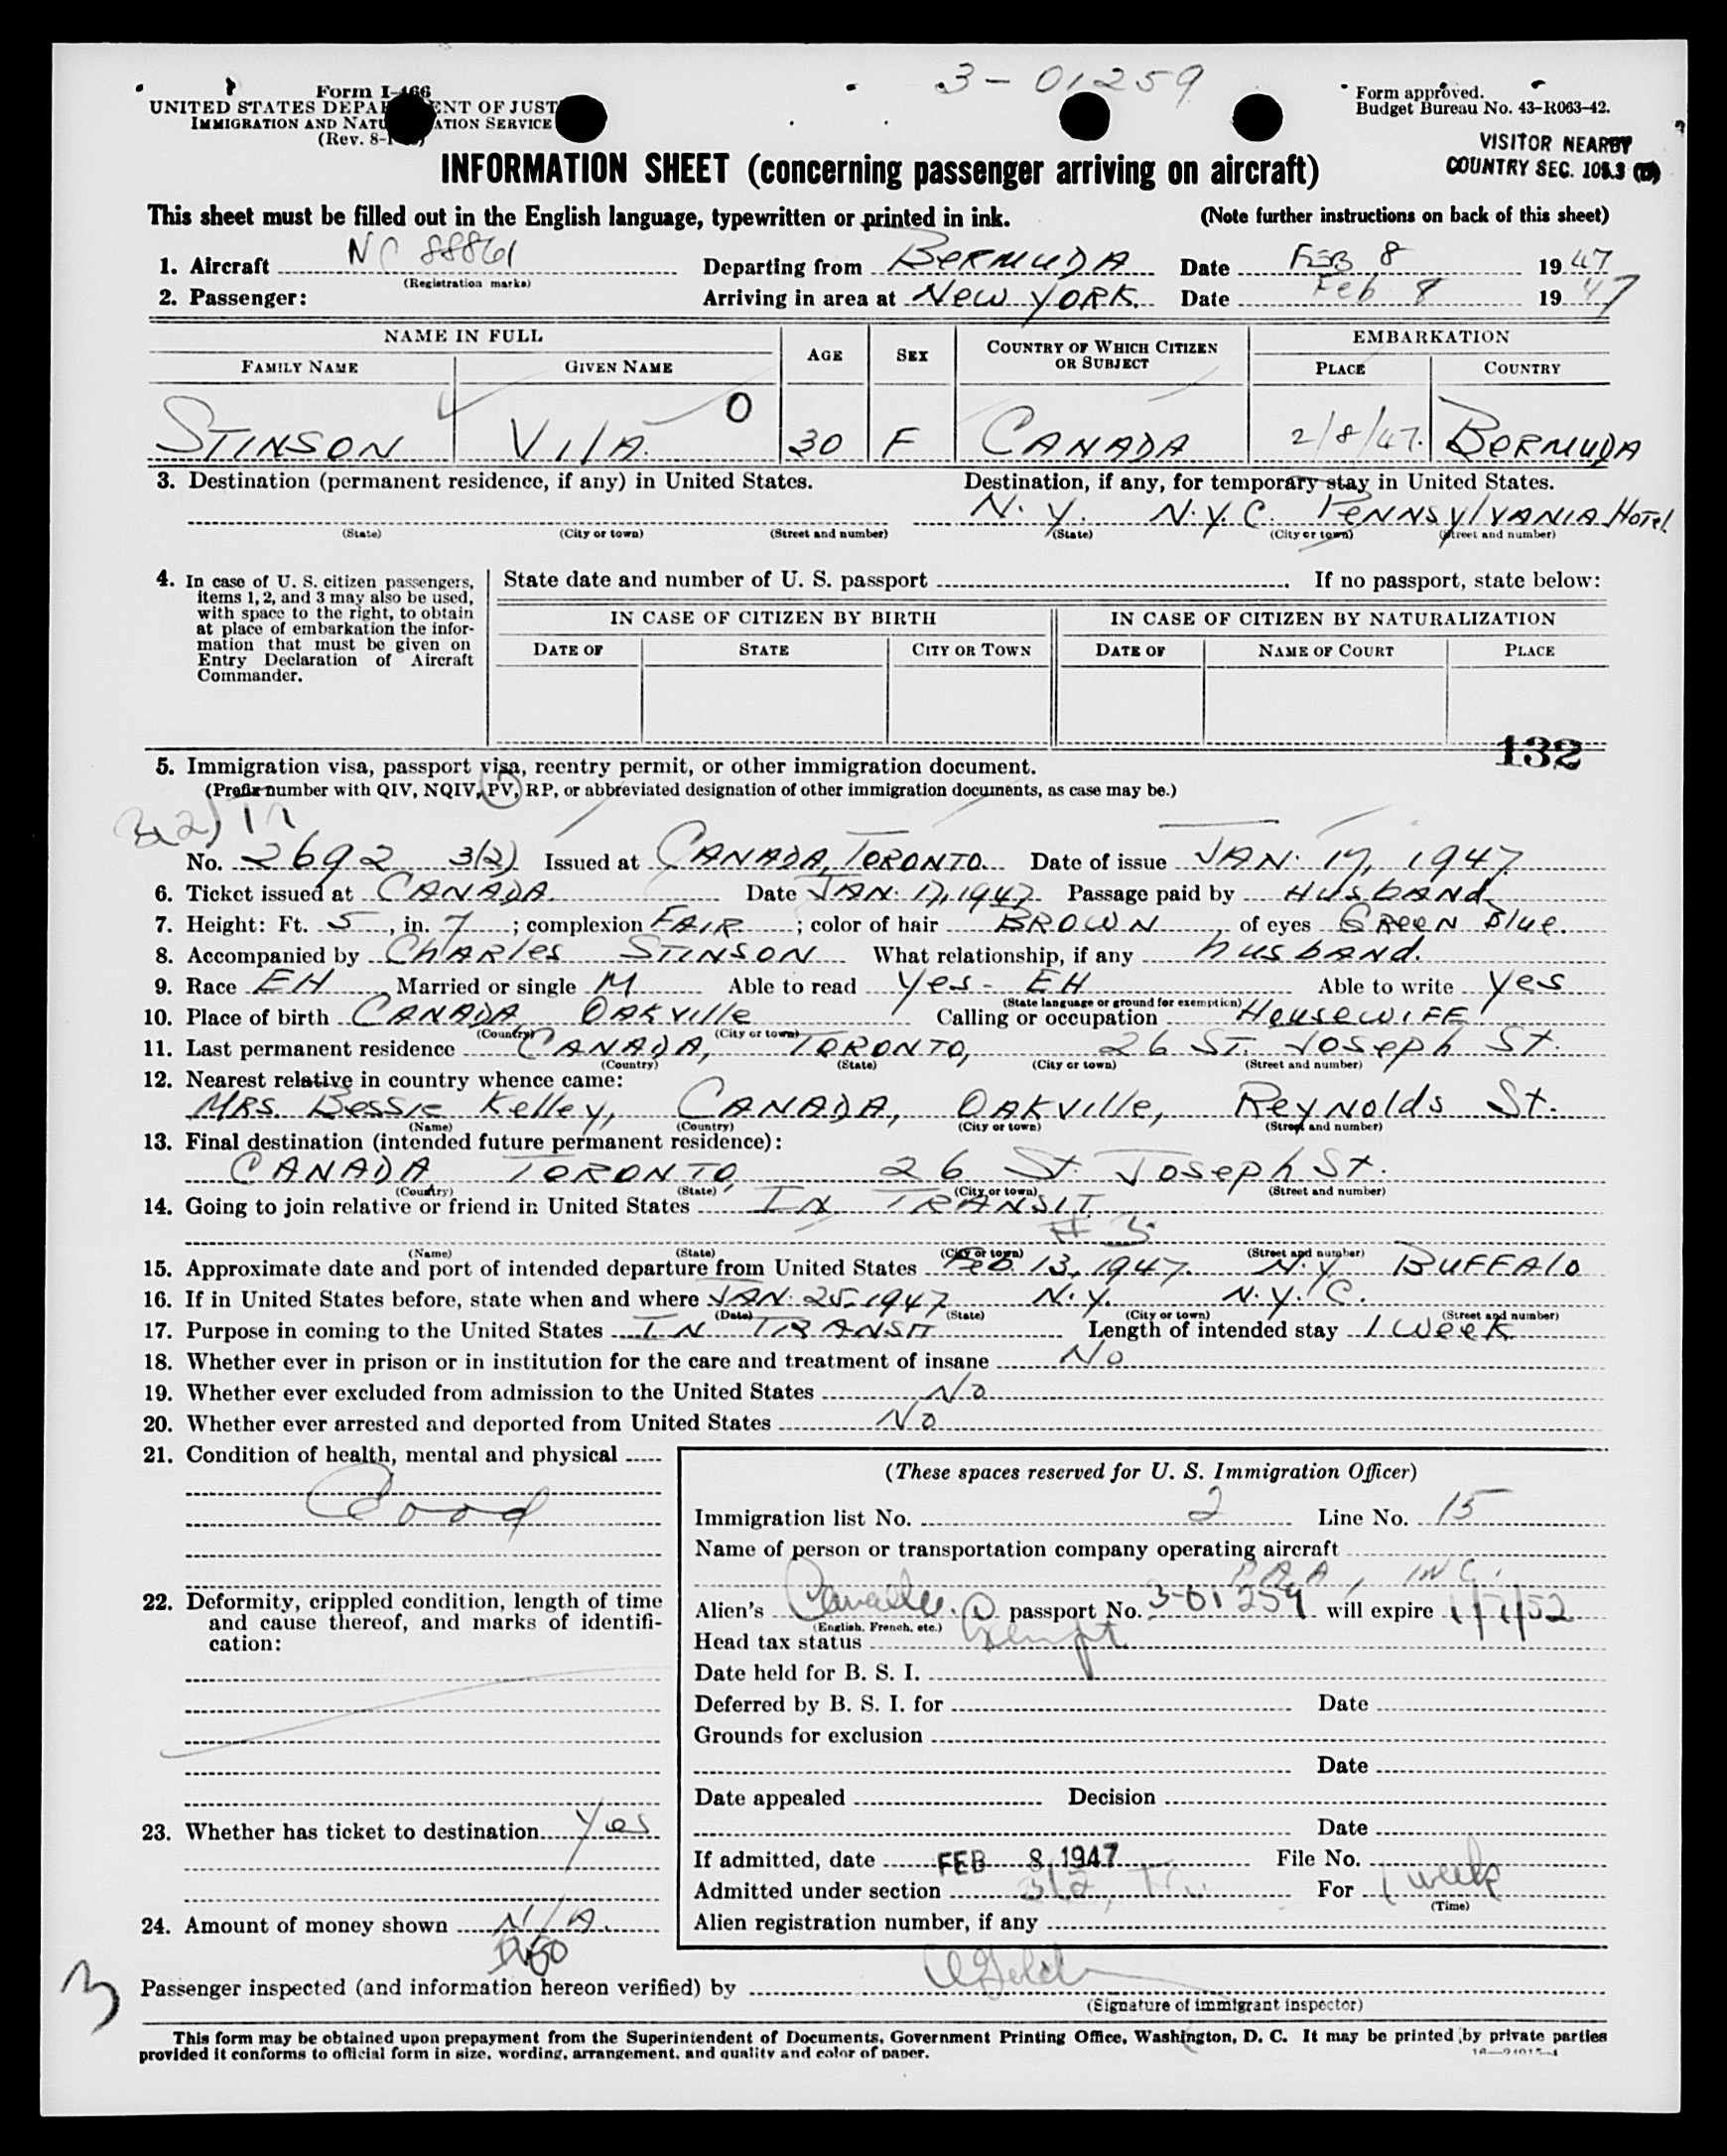 3-01259
Form I-466
UNITED STATES DEPARTMENT OF JUSTICE
IMMIGRATION AND NATURALIZATION SERVICE
(Rev. 8-
Form approved.
Budget Bureau No. 43-R063-42.
VISITOR NEARBY
COUNTRY SEC. 105.3
INFORMATION SHEET (concerning passenger arriving on aircraft)
This sheet must be filled out in the English language, typewritten or printed in ink. (Note further instructions on back of this sheet)
1. Aircraft NC 88861 Departing from BERMUDA Date FEB 8 1947
(Registration marks)
2. Passenger: Arriving in area at NEW YORK Date Feb 8 1947
NAME IN FULL AGE SEX COUNTRY OF WHICH CITIZEN OR SUBJECT EMBARKATION
FAMILY NAME GIVEN NAME PLACE COUNTRY
0
STINSON VilA 30 F CANADA 2/8/47. BERMUDA
3. Destination (permanent residence, if any) in United States. Destination, if any, for temporary stay in United States.
N.Y. N.Y.C. PENNSylVANIA HoTel
(State) (City or town) (Street and number) (State) (City or town) (Street and number)
4. In case of U. S. citizen passengers, items 1, 2, and 3 may also be used, with space to the right, to obtain at place of embarkation the information that must be given on Entry Declaration of Aircraft Commander.
State date and number of U. S. passport If no passport, state below:
IN CASE OF CITIZEN BY BIRTH IN CASE OF CITIZEN BY NATURALIZATION
DATE OF STATE CITY OR TOWN DATE OF NAME OF COURT PLACE
132
5. Immigration visa, passport visa, reentry permit, or other immigration document.
(Prefix number with QIV, NQIV, PV, RP, or abbreviated designation of other immigration documents, as case may be.)
No. 2692 3(2) Issued at CANADA, TORONTO Date of issue JAN. 17, 1947
6. Ticket issued at CANADA Date JAN. 17, 1947 Passage paid by HUSbANd
7. Height: Ft. 5, in. 7; complexion FAIR; color of hair BROWN of eyes GReeN Blue
8. Accompanied by ChARles STINSON What relationship, if any husbANd.
9. Race EH Married or single M Able to read Yes - EH Able to write Yes
(State language or ground for exemption)
10. Place of birth CANADA, OAKville Calling or occupation HOUSEWIFE
(Country) (City or town)
11. Last permanent residence CANADA, TORONTO, 26 ST. JOSEph St.
(Country) (State) (City or town) (Street and number)
12. Nearest relative in country whence came:
MRS. BESSIE Kelley, CANADA, OAKville, ReyNolds St.
(Name) (Country) (City or town) (Street and number)
13. Final destination (intended future permanent residence):
CANADA TORONTO, 26 St. JOSEph St.
(Country) (State) (City or town) (Street and number)
14. Going to join relative or friend in United States IN TRANSIT
# 3
(Name) (State) (City or town) (Street and number)
15. Approximate date and port of intended departure from United States Feb. 13, 1947. N.Y BUFFAlO
16. If in United States before, state when and where JAN. 25, 1947 N.Y. N.Y.C.
(Date) (State) (City or town) (Street and number)
17. Purpose in coming to the United States IN TRANSIT Length of intended stay 1 Week
18. Whether ever in prison or in institution for the care and treatment of insane No
19. Whether ever excluded from admission to the United States No
20. Whether ever arrested and deported from United States No
21. Condition of health, mental and physical
Good
22. Deformity, crippled condition, length of time and cause thereof, and marks of identification:
23. Whether has ticket to destination Yes
24. Amount of money shown N/A.
(These spaces reserved for U. S. Immigration Officer)
Immigration list No. 2 Line No. 15
Name of person or transportation company operating aircraft
P.A.A, INC.
Alien's passport No. 3-01259 will expire 1/7/52
(English, French, etc.)
Head tax status Exempt
Date held for B. S. I.
Deferred by B. S. I. for Date
Grounds for exclusion
Date
Date appealed Decision
Date
If admitted, date FEB 8 1947 File No.
Admitted under section 3(2) For 1 week
(Time)
Alien registration number, if any
3
Passenger inspected (and information hereon verified) by
(Signature of immigrant inspector)
This form may be obtained upon prepayment from the Superintendent of Documents, Government Printing Office, Washington, D. C. It may be printed by private parties
provided it conforms to official form in size, wording, arrangement, and quality and color of paper.